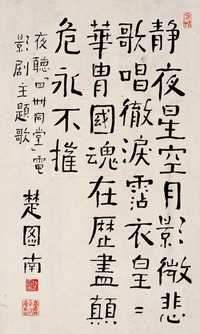 静夜星空月影微悲
歌唱徹淚霑衣皇〻
華胄國魂在歷盡顛
危永不摧
夜聽「四世同堂」電
影劇主題歌
楚圖南